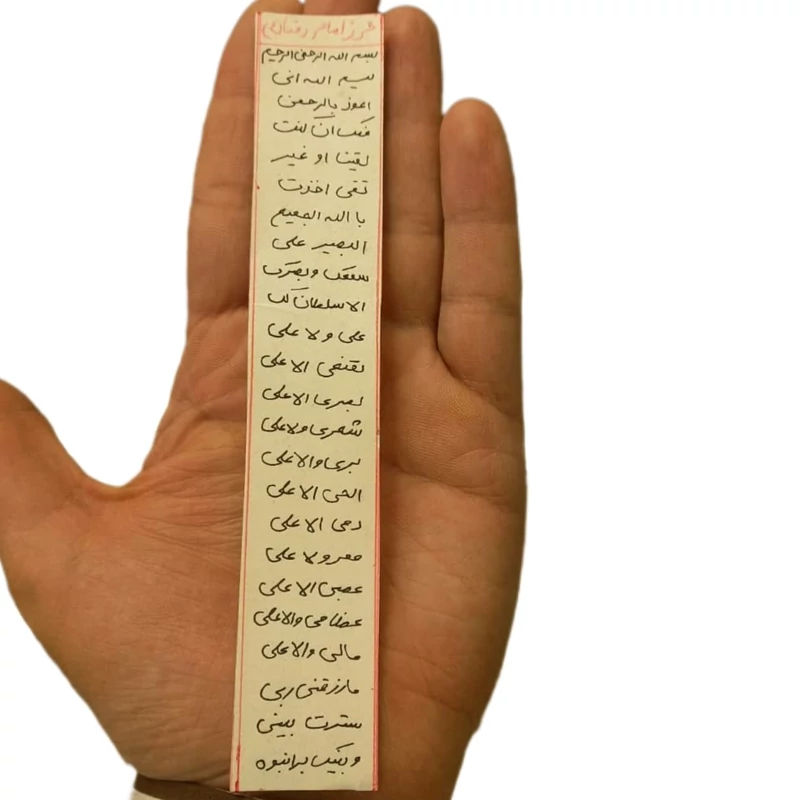 حرز امام رضا
بسم الله الرحمن الرحیم
بسم الله انی
اعوذ بالرحمن
منک ان کنت
لقینا او غیر
تقی اخذت
با الله السمیع
البصیر علی
سمعک و بصرک
الا سلطان لک
علی و لا علی
لقنفی الا علی
بصری الا علی
شعری ولا علی
بری والا علی
الحی الا علی
دمی الا علی
معرولا علی
عصبی الا علی
عظامی والا علی
مالی والا علی
مارزقنی ربی
سترت بینی
وبینک برا نبوه